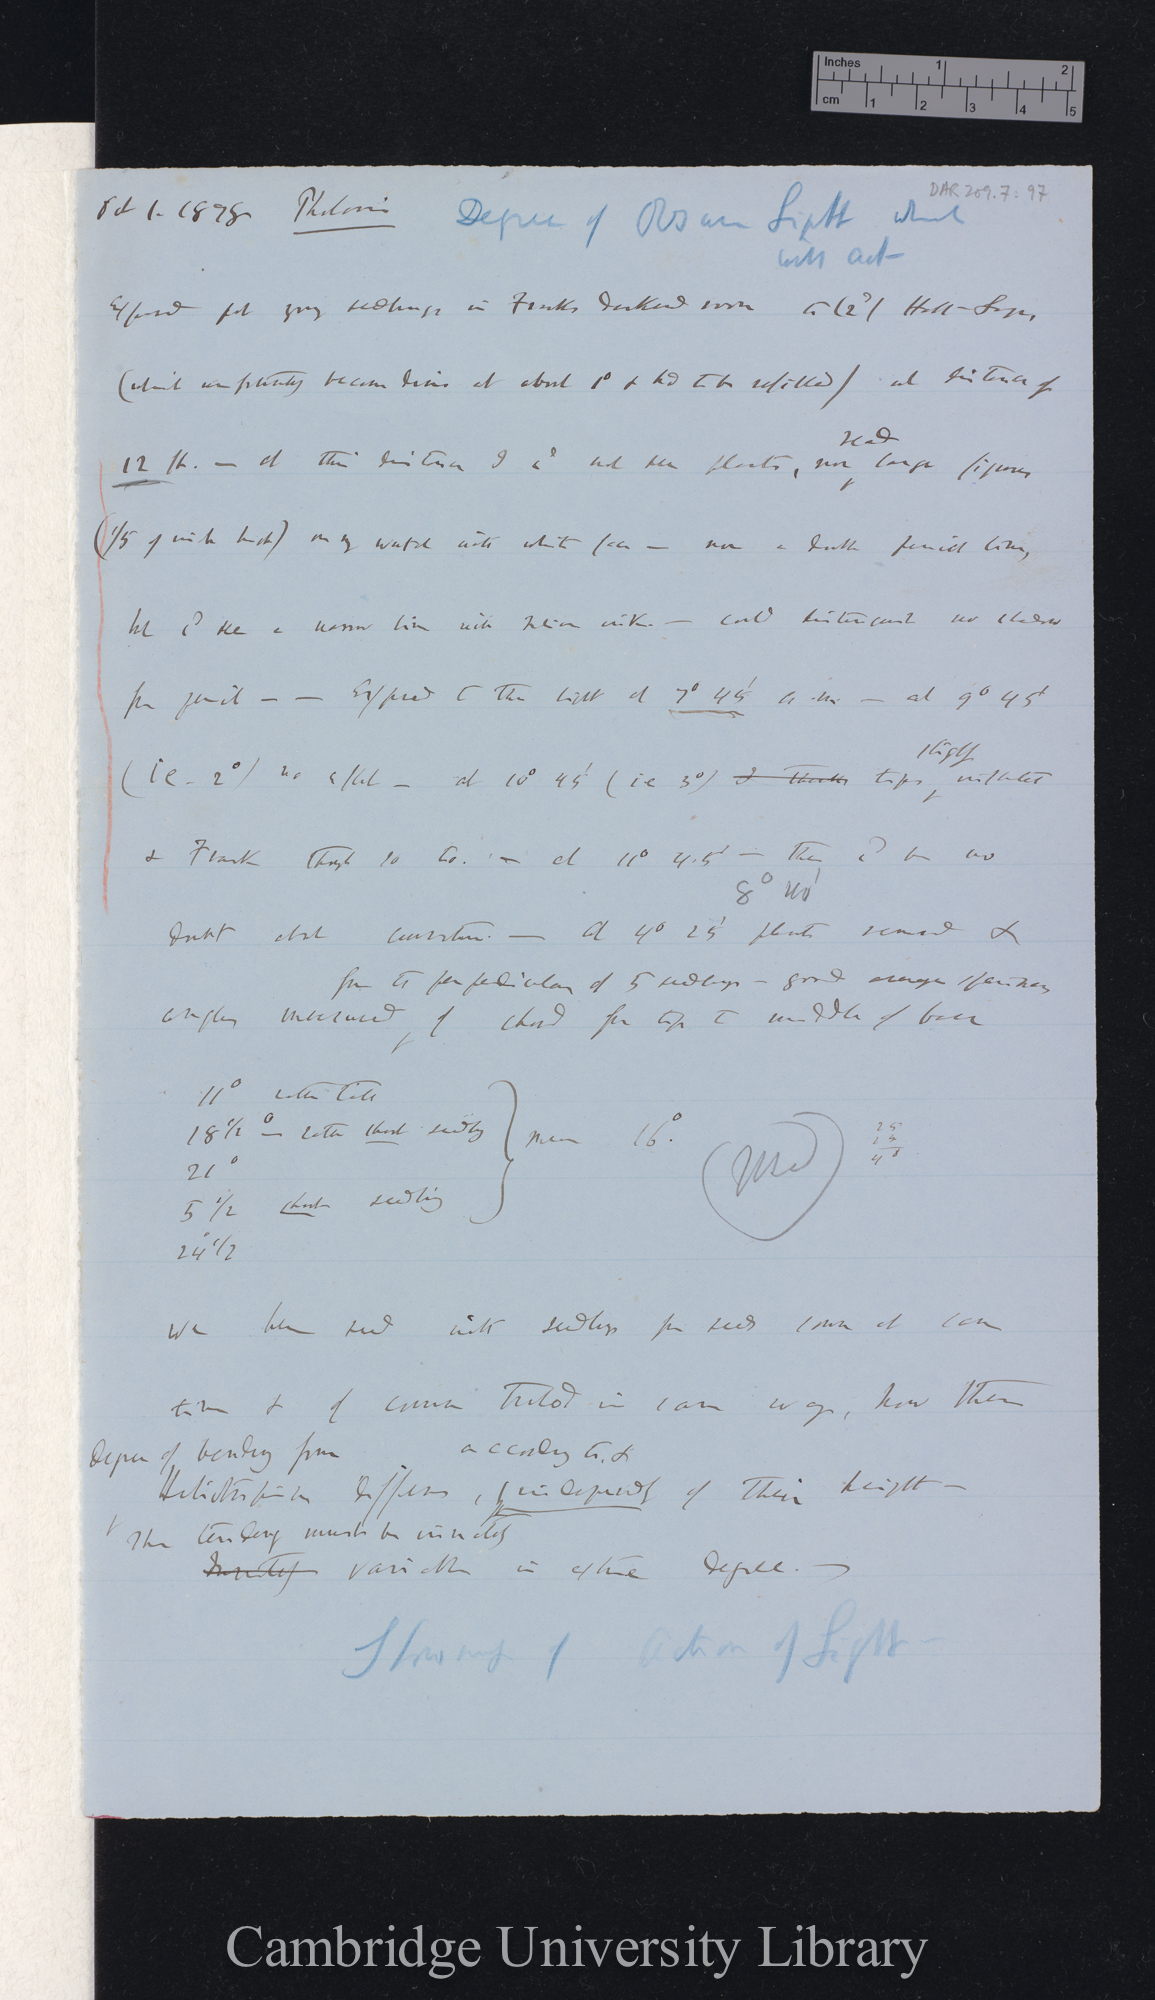 Inches 1 2
cm 1 2 3 4 5
DAR 209.7: 97
Oct 1. 1878 Phalaris Degree of Obscure Light which
will act
Exposed pot young seedlings in Franks darkened room to (2?) Hall-Lamp,
(which comparatively became dim at about 1° & had to be refilled) at distance of
12 ft. — at this distance I cd not see plants, nor read large figures
(1/5 of inch high) on my watch with white face — nor a double pencil line,
but cd see a narrow line with Indian ink. — could distinguish no shadow
from pencil — — Exposed to this light at 7° 45' a. m — at 9° 45'
(ie - 2°) no effect — at 10° 45' (ie 3°) I think tips slightly inflected
& Frank thought so too. — at 11° 45' — there cd be no
8° 40'
doubt about curvature. — At 4° 25' plants removed &
from the perpendicular of 5 seedlings — good average specimens
angles measured, of chord from tip to middle of base
11° rather tall
18 1/2° — rather short seedling
21°
5 1/2 short seedling
24° 1/2
mean 16°.
(Used)
We have seed with seedlings from seeds sown at same
time & of course treated in same way, how their
degree of bending from according to. &
Heliotropism differs, independently of their height —
The tendency must be innately
Innately variable in extreme degree. —
Slowness of Action of Light —
Cambridge University Library